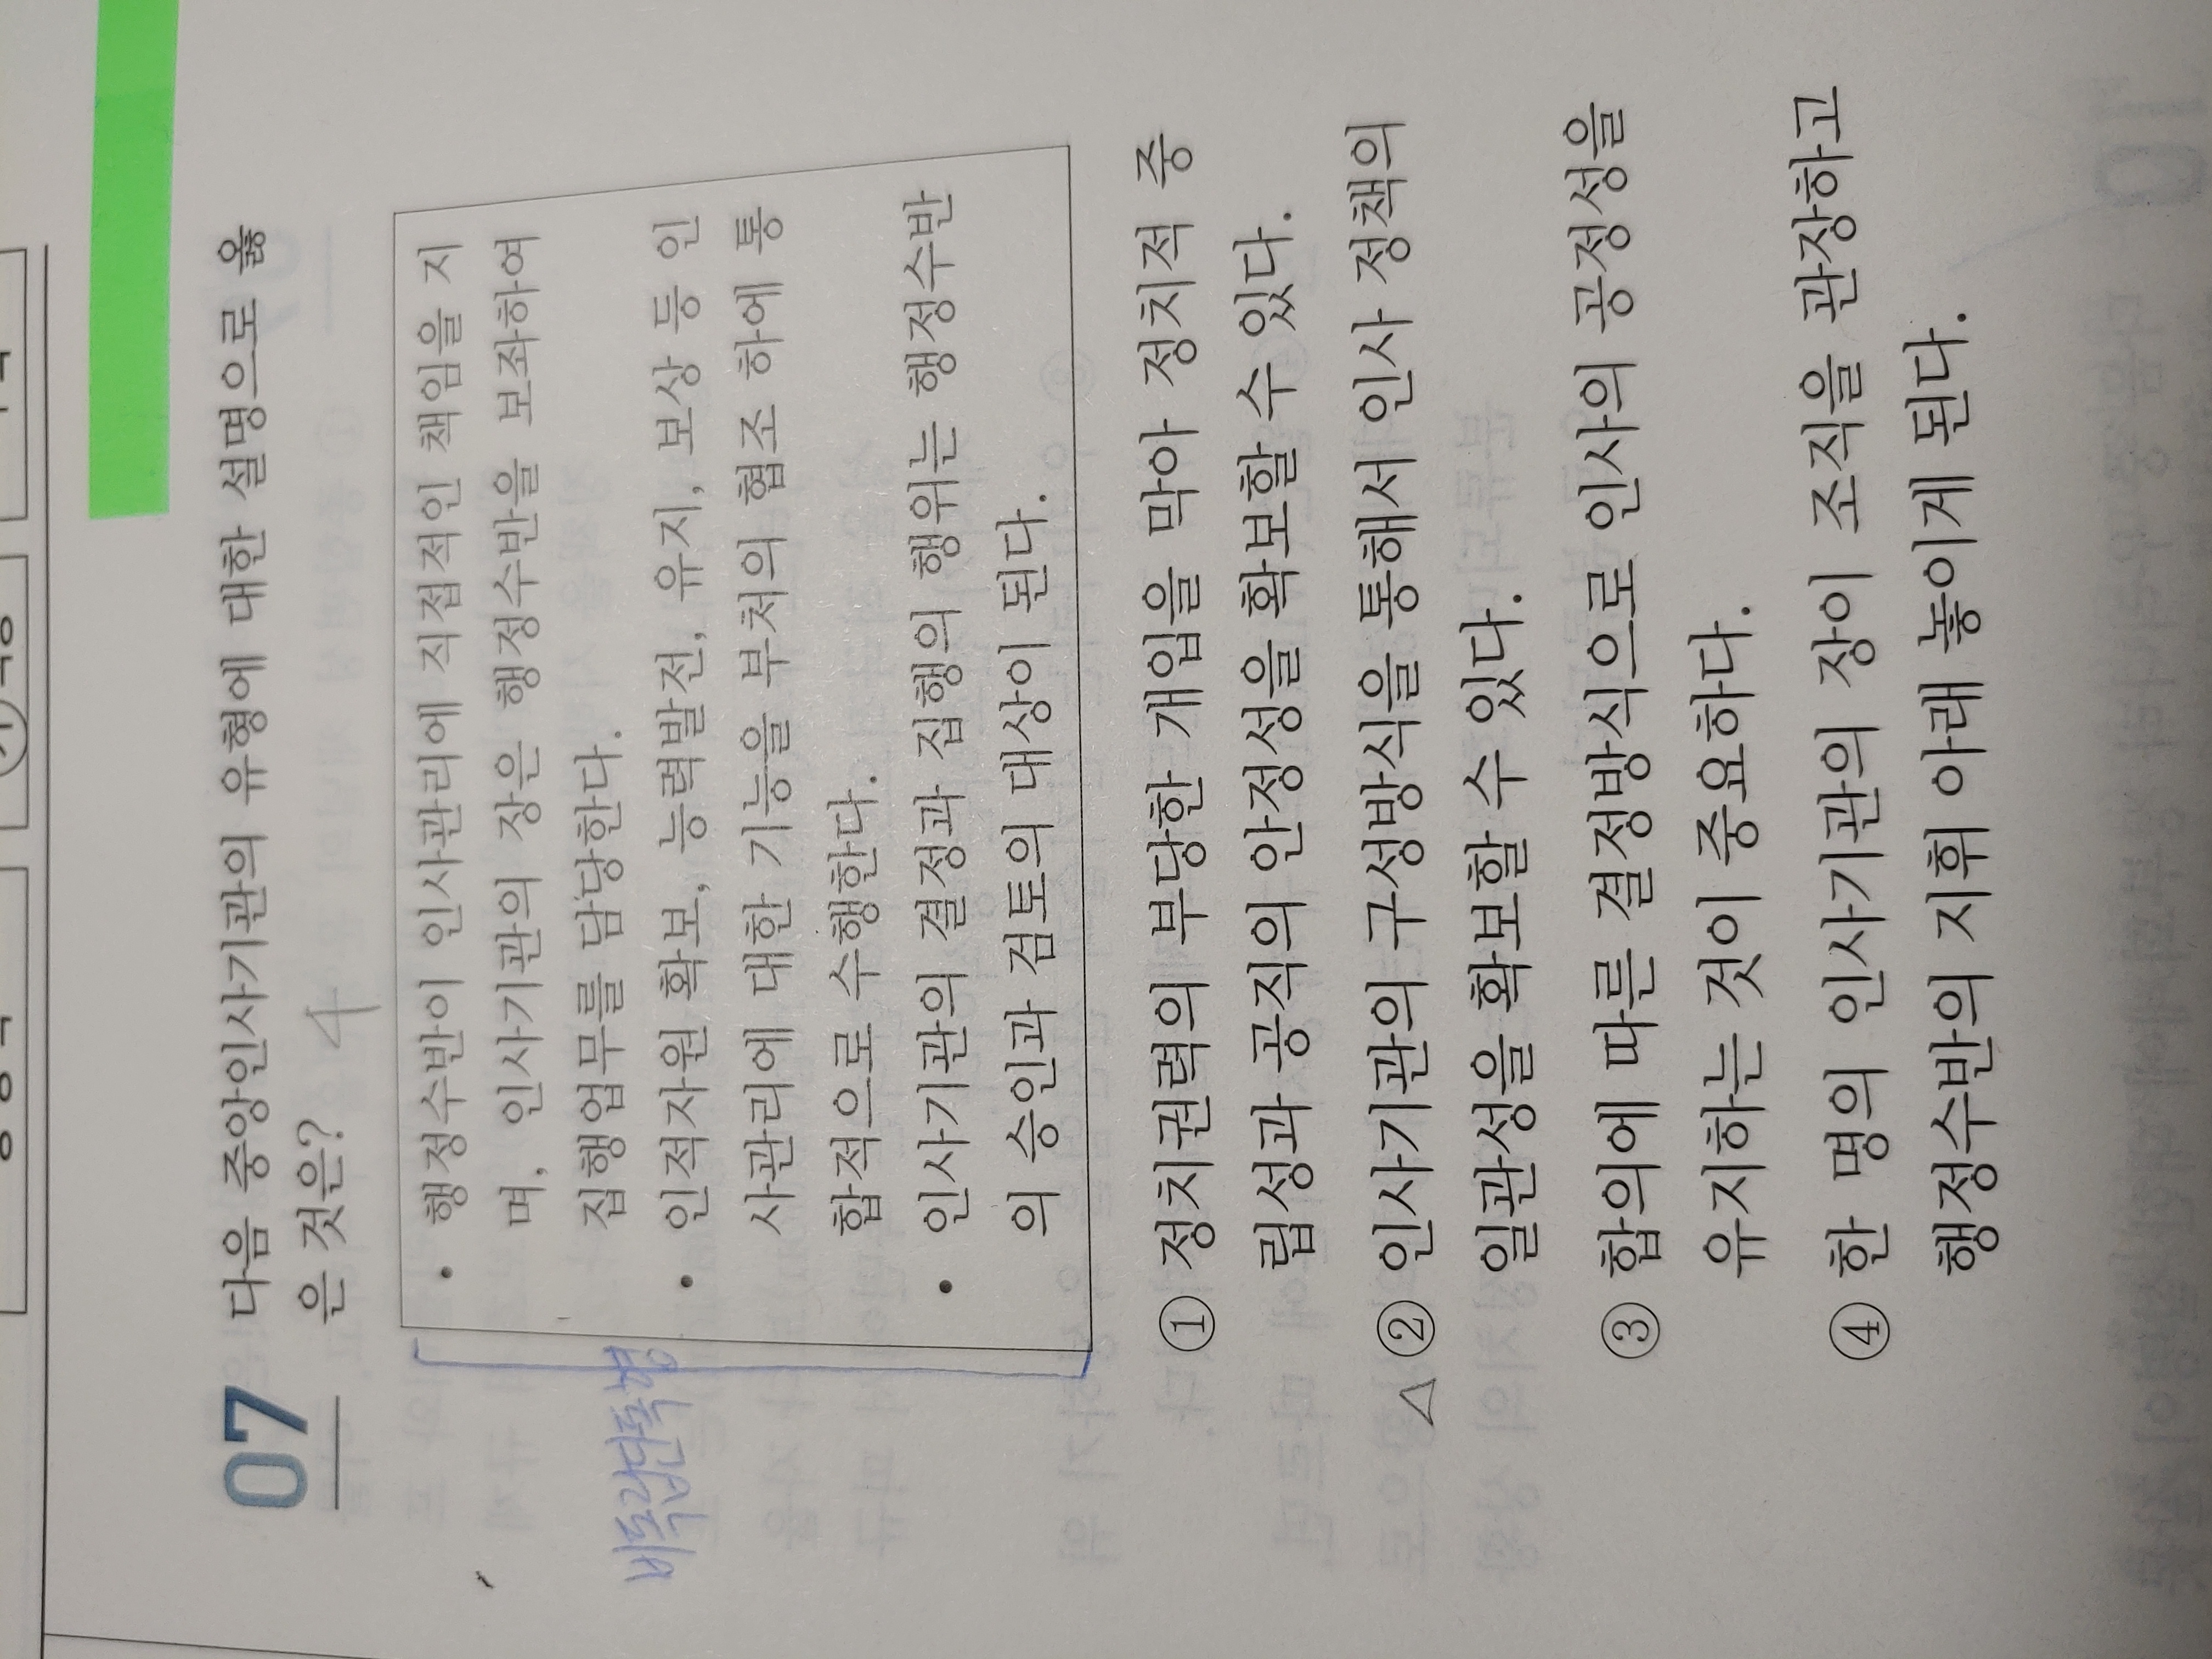 07
다음 중앙인사기관의 유형에 대한 설명으로 옳
은 것은? 4
• 행정수반이 인사관리에 직접적인 책임을 지
며, 인사기관의 장은 행정수반을 보좌하여
집행업무를 담당한다.
• 인적자원 확보, 능력발전, 유지, 보상 등 인
사관리에 대한 기능을 부처의 협조 하에 통
합적으로 수행한다.
• 인사기관의 결정과 집행의 행위는 행정수반
의 승인과 검토의 대상이 된다.
비독립단독형
① 정치권력의 부당한 개입을 막아 정치적 중
립성과 공직의 안정성을 확보할 수 있다.
△ ② 인사기관의 구성방식을 통해서 인사 정책의
일관성을 확보할 수 있다.
③ 합의에 따른 결정방식으로 인사의 공정성을
유지하는 것이 중요하다.
④ 한 명의 인사기관의 장이 조직을 관장하고
행정수반의 지휘 아래 놓이게 된다.